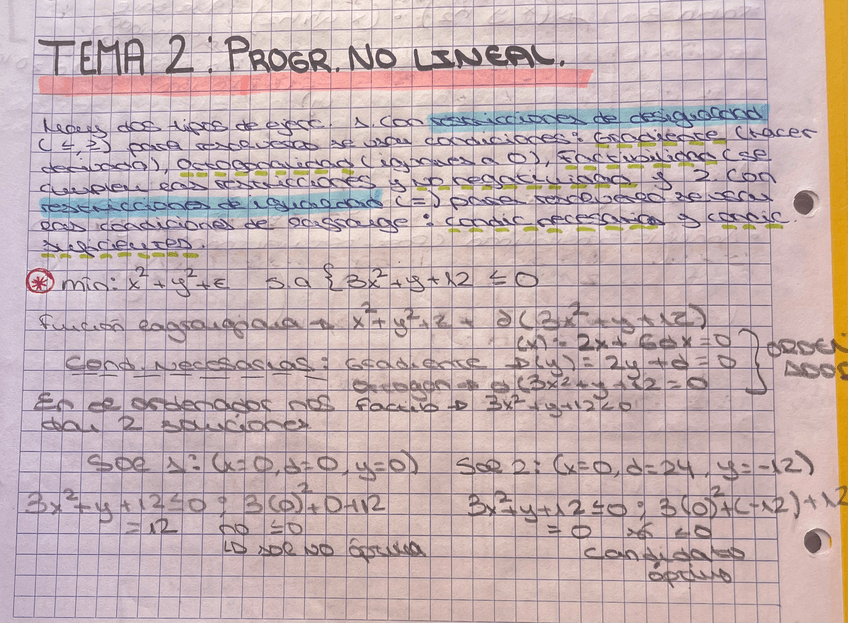 TEMA 2: PROGR. NO LINEAL.
Hay dos tipos de ejerc. 1. Con restricciones de desigualdad
(≤, ≥) para resolverlos se usan condiciones: Gradiente (hacer
derivada), Ortogonalidad (igualar a 0), Factibilidad (se
cumplen las restricciones) y no negatividad y 2 con
restricciones de igualdad (=) para resolverlo se usan
las condiciones de Lagrange: condic. necesarias y condic.
suficientes.
* min: x² + y² + s.a {3x² + y + 12 ≤ 0
Función lagrangiana → x² + y² + 2 + d(3x² + y + 12)
(x) = 2x + 6dx = 0
Cond. Necesarias: Gradiente → (y) = 2y + d = 0
ortogon → d(3x² + y + 12 = 0
ORDEN
ADOR
En el ordenador nos Factib → 3x² + y + 12 ≤ 0
dan 2 soluciones
Sol 1: (x=0, d=0, y=0) Sol 2: (x=0, d=24, y=-12)
3x² + y + 12 ≤ 0; 3(0)² + 0 + 12 3x² + y + 12 ≤ 0; 3(0)² + (-12) + 12
= 12 no ≤ 0 = 0 ≤ 0
↳ sol no óptima candidato
óptimo